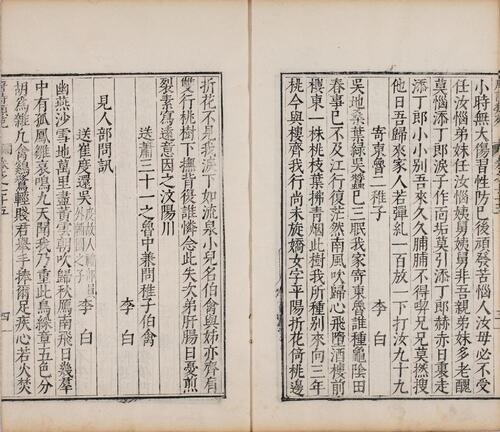 小時無大傷習性防已後頑發苦惱人汝母必不受
任汝惱弟妹任汝惱姨舅姨舅非吾親弟妹多老醜
莫惱添丁郎淚子作面垢莫引添丁郎赫赤日裏走
添丁郎小小別吾來久久脯脯不得喫兄兄莫撚搜
他日吾歸來家人若彈糺一百放一下打汝九十九
寄東魯二稚子 李白
吳地桑葉綠吳蠶已三眠我家寄東魯誰種龜陰田
春事已不及江行復茫然南風吹歸心飛墮酒樓前
樓東一株桃枝葉拂青烟此樹我所種別來向三年
桃今與樓齊我行尚未旋嬌女字平陽折花倚桃邊
折花不見我淚下如流泉小兒名伯禽與姊亦齊肩
雙行桃樹下撫背復誰憐念此失次第肝腸日憂煎
裂素寫遠意因之汶陽川
送蕭三十一之魯中兼問稚子伯禽
李白
見人部問訊
送崔度還吳 度故人禮部員外輔國之子 李白
幽燕沙雪地萬里盡黃雲朝吹歸秋鴈南飛日幾羣
中有孤鳳雛哀鳴九天聞我乃重此鳥綵章五色分
胡為雜凡禽鷄鶩輕賤君舉手捧爾足疾心若火焚